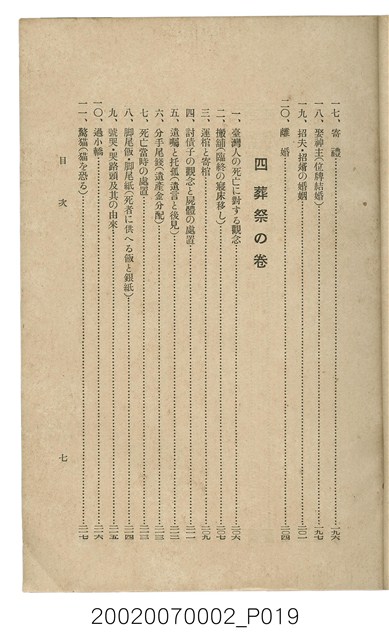 一七、寄禮……一九六
一八、娶神主(位牌結婚)……一九七
一九、招夫・招婿の婚姻……二〇一
二〇、離婚……二〇四
四 葬祭の卷
一、臺灣人の死亡に對する觀念……二〇六
二、搬舖(臨終の寢床移し)……二〇七
三、運棺と寄棺……二〇九
四、討債子の觀念と屍體の處置……二一一
五、遺囑と托孤(遺言と後見)……二一二
六、分手尾錢(遺產金分配)……二一三
七、死亡當時の處置……二一三
八、脚尾飯・脚尾紙(死者に供へる飯と銀紙)……二一四
九、號哭・哭路頭及其の由來……二一五
一〇、過小轎……二一六
一一、驚猫(猫を恐る)……二一七
目次
七
20020070002_P019